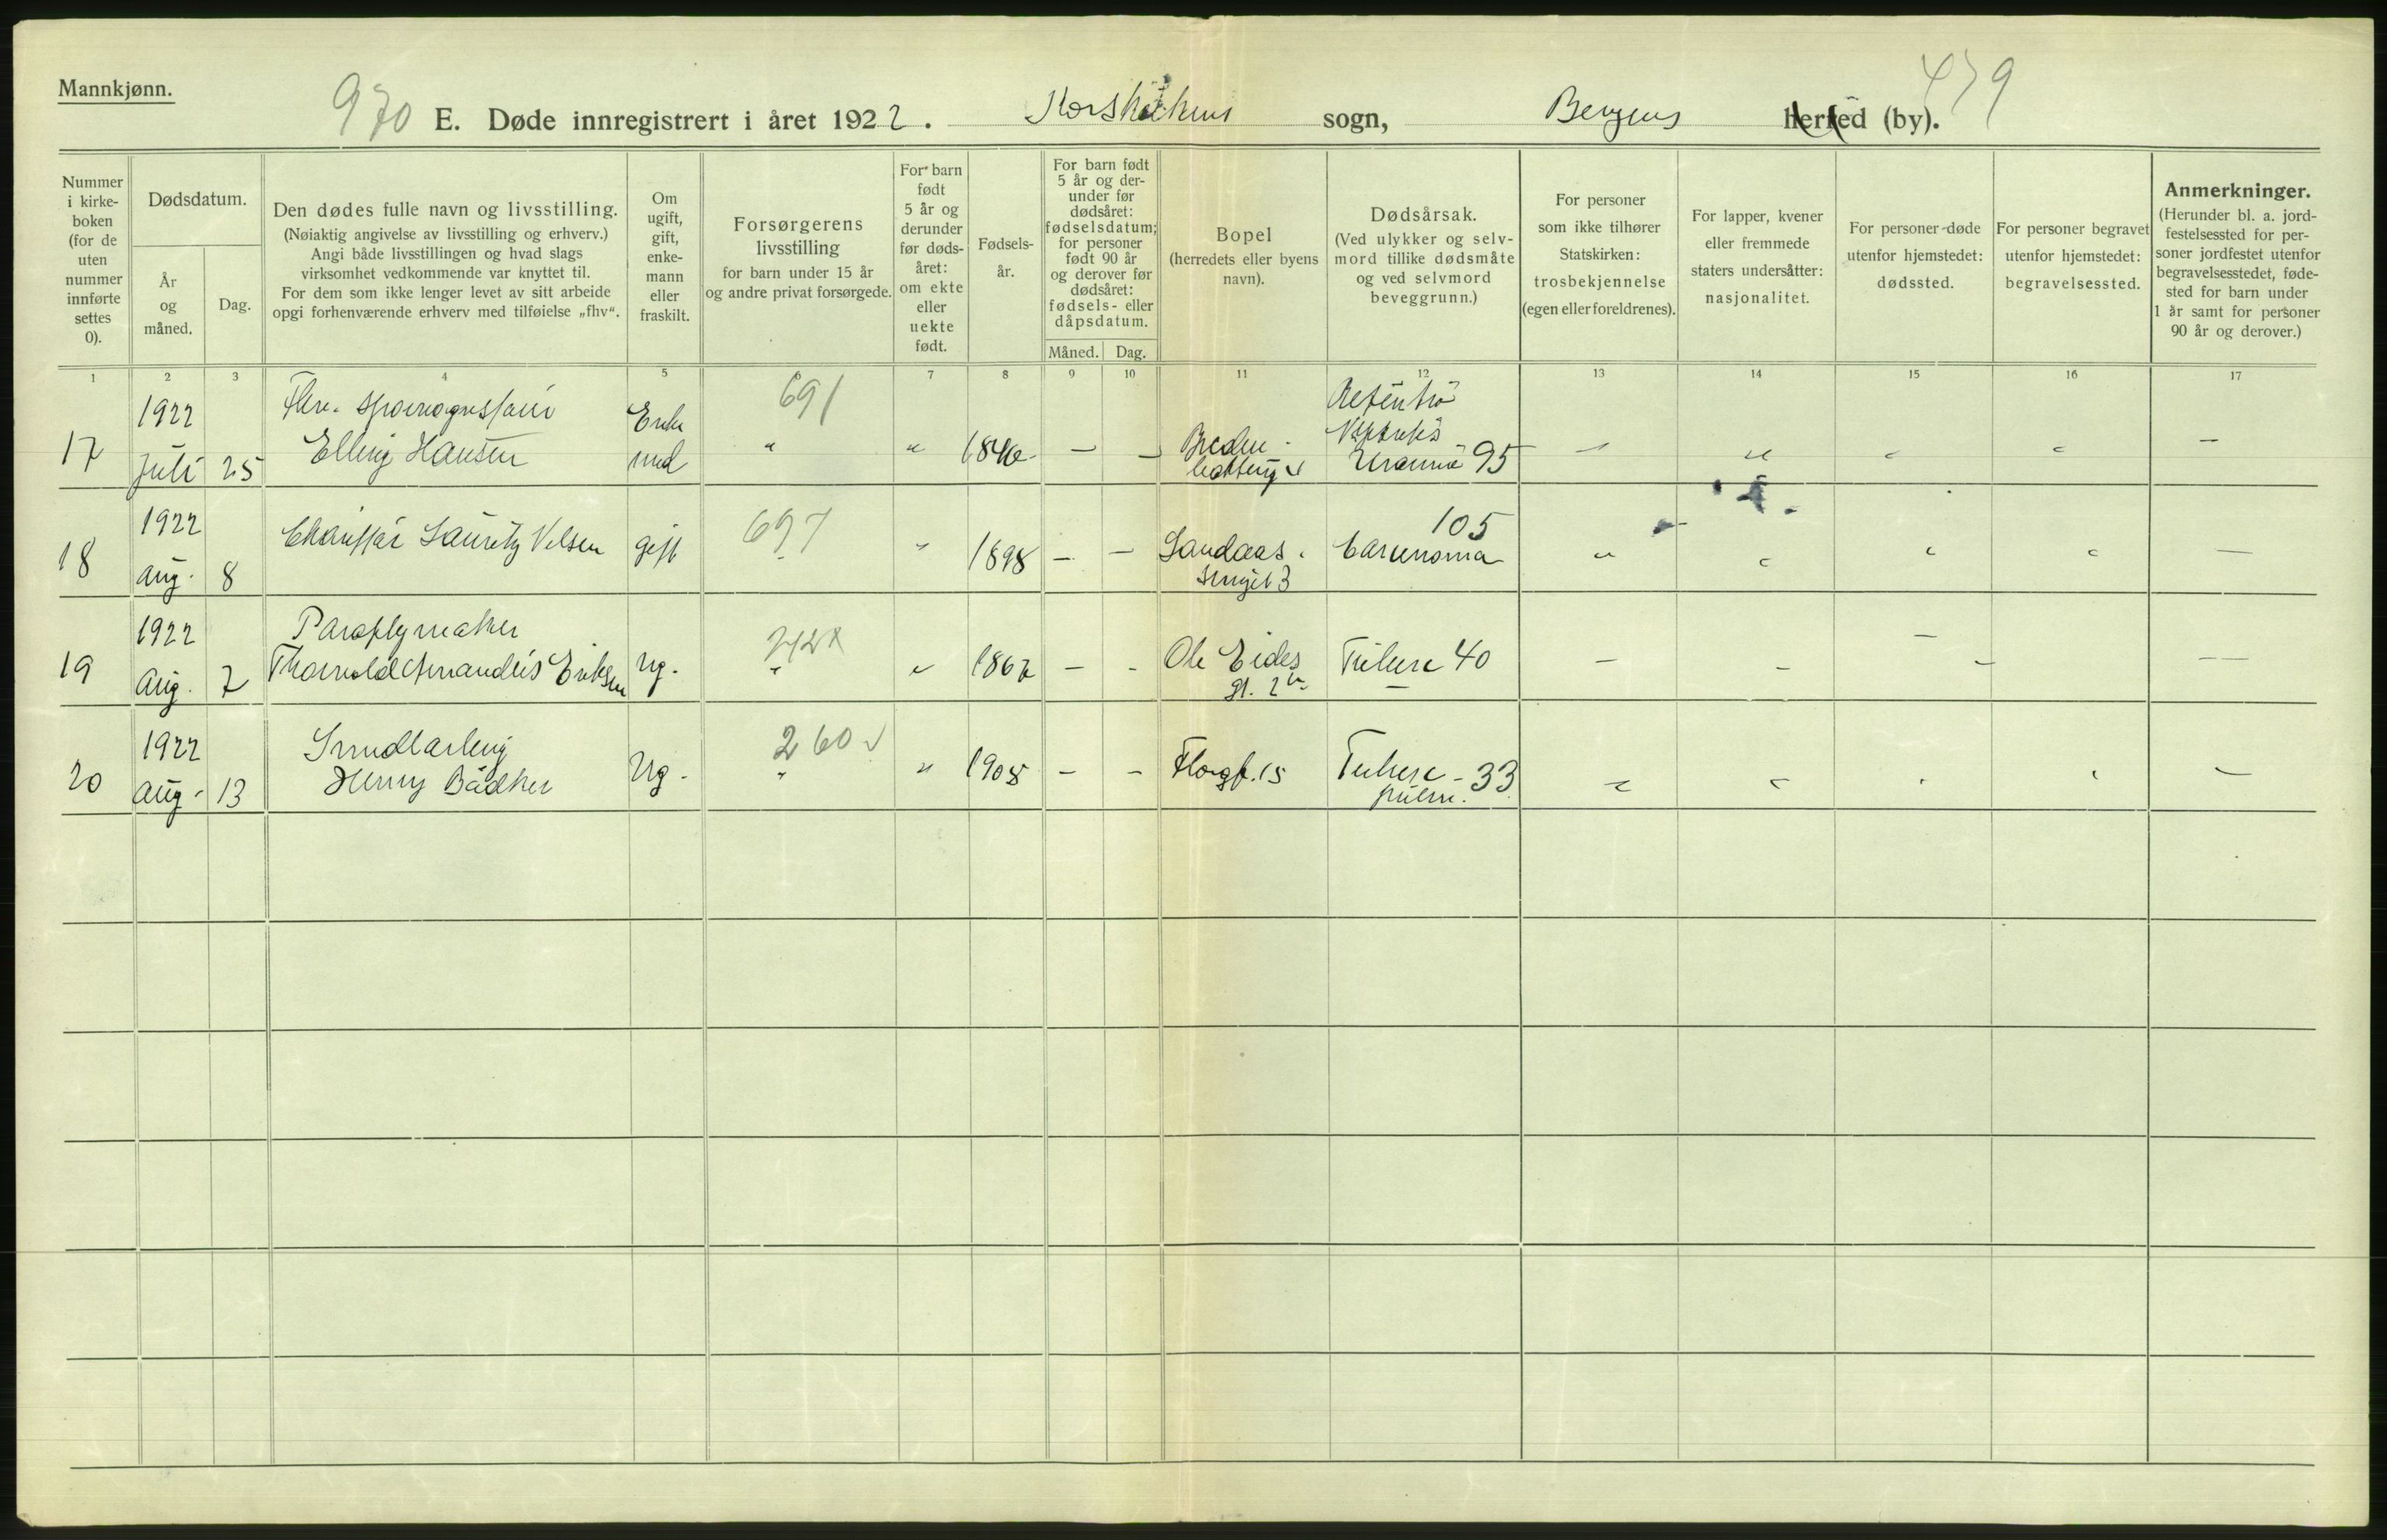 Mannkjønn.
970 E. Døde innregistrert i året 1922. Korskirkens sogn, Bergens herred (by). 479
Nummer i kirke-boken (for de uten nummer innførte settes 0).
Dødsdatum.
År og måned.
Dag.
Den dødes fulle navn og livsstilling.
(Nøiaktig angivelse av livsstilling og erhverv.)
Angi både livsstillingen og hvad slags
virksomhet vedkommende var knyttet til.
For dem som ikke lenger levet av sitt arbeide
opgi forhenværende erhverv med tilføielse „fhv“.
Om ugift, gift, enke-mann eller fraskilt.
Forsørgerens
livsstilling
for barn under 15 år
og andre privat forsørgede.
For barn født 5 år og derunder før døds-året: om ekte eller uekte født.
Fødsels-år.
For barn født 5 år og der-under før dødsåret: fødselsdatum; for personer født 90 år og derover før dødsåret: fødsels- eller dåpsdatum.
Måned. Dag.
Bopel
(herredets eller byens
navn).
Dødsårsak.
(Ved ulykker og selv-
mord tillike dødsmåte
og ved selvmord
beveggrunn.)
For personer
som ikke tilhører
Statskirken:
trosbekjennelse
(egen eller foreldrenes).
For lapper, kvener
eller fremmede
staters undersåtter:
nasjonalitet.
For personer døde
utenfor hjemstedet:
dødssted.
For personer begravet
utenfor hjemstedet:
begravelsessted.
Anmerkninger.
(Herunder bl. a. jord-
festelsessted for per-
soner jordfestet utenfor
begravelsesstedet, føde-
sted for barn under
1 år samt for personer
90 år og derover.)
1 2 3 4 5 6 7 8 9 10 11 12 13 14 15 16 17
1922 691
17 Juli 25 Elling Hansen Enke mnd " " 1846 - - 95 - " " " -
1922 697 105
18 Aug. 8 Chauffør Lauritz Nilsen gift " " 1898 - - Landaas- Carcinoma " " " " -
svinget 3
1922 Paraplymaker 242
19 Aug. 7 Thorvald Amandus Eriksen Ug. " " 1867 - - Ole Eides Tuberc 40 - - - - -
gt. 2
1922 260 v
20 Aug. 13 Henry Bødker Ug. " " 1908 - - 15 Tuberc - 33 " " " " -
pulm.